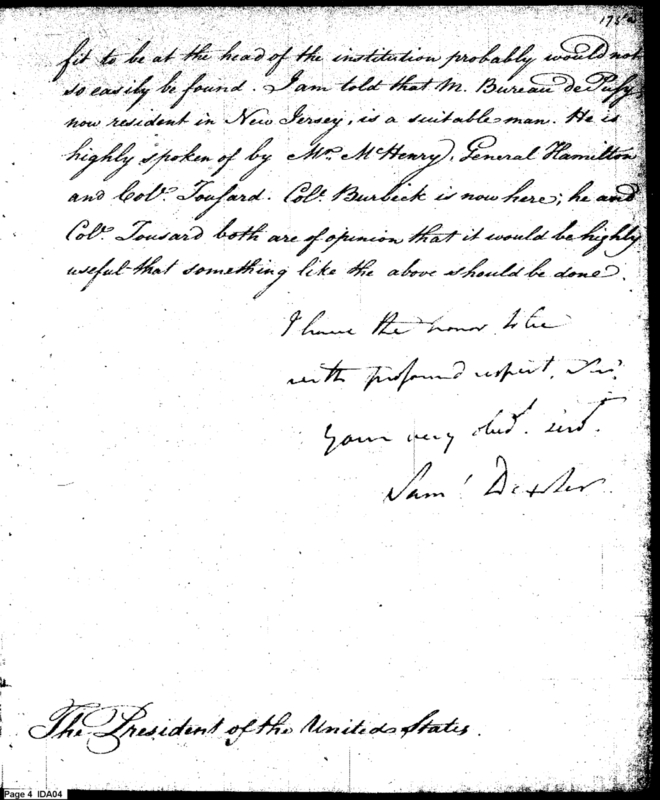 fit to be at the head of the institution probably would not
so easily be found. I am told that M. Bureau de Pusy
now resident in New Jersey, is a suitable man. He is
highly spoken of by Mr. McHenry, General Hamilton
and Col. Tousard. Col. Burbeck is now here; he and
Col. Tousard both are of opinion that it would be highly
useful that something like the above should be done.
I have the honor to be
with profound respect, Sir,
Your very obed. servt.
Saml Dexter
The President of the United States.
Page 4 IDA04